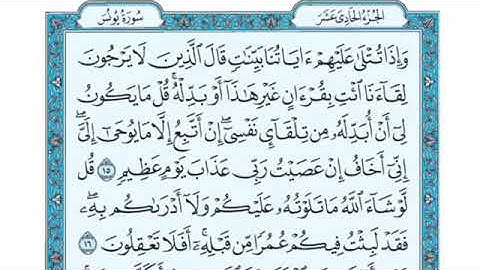 الجُزْءُ الحَادِى عَشَرَ
سُورَةُ يُونُسَ
وَإِذَا تُتْلَىٰ عَلَيْهِمْ ءَايَاتُنَا بَيِّنَٰتٍ قَالَ ٱلَّذِينَ لَا يَرْجُونَ
لِقَآءَنَا ٱئْتِ بِقُرْءَانٍ غَيْرِ هَٰذَآ أَوْ بَدِّلْهُ ۚ قُلْ مَا يَكُونُ
لِىٓ أَنْ أُبَدِّلَهُۥ مِن تِلْقَآئِ نَفْسِىٓ ۖ إِنْ أَتَّبِعُ إِلَّا مَا يُوحَىٰٓ إِلَىَّ ۖ
إِنِّىٓ أَخَافُ إِنْ عَصَيْتُ رَبِّى عَذَابَ يَوْمٍ عَظِيمٍ ١٥ قُل
لَّوْ شَآءَ ٱللَّهُ مَا تَلَوْتُهُۥ عَلَيْكُمْ وَلَآ أَدْرَىٰكُم بِهِۦ ۖ
فَقَدْ لَبِثْتُ فِيكُمْ عُمُرًا مِّن قَبْلِهِۦٓ ۚ أَفَلَا تَعْقِلُونَ ١٦